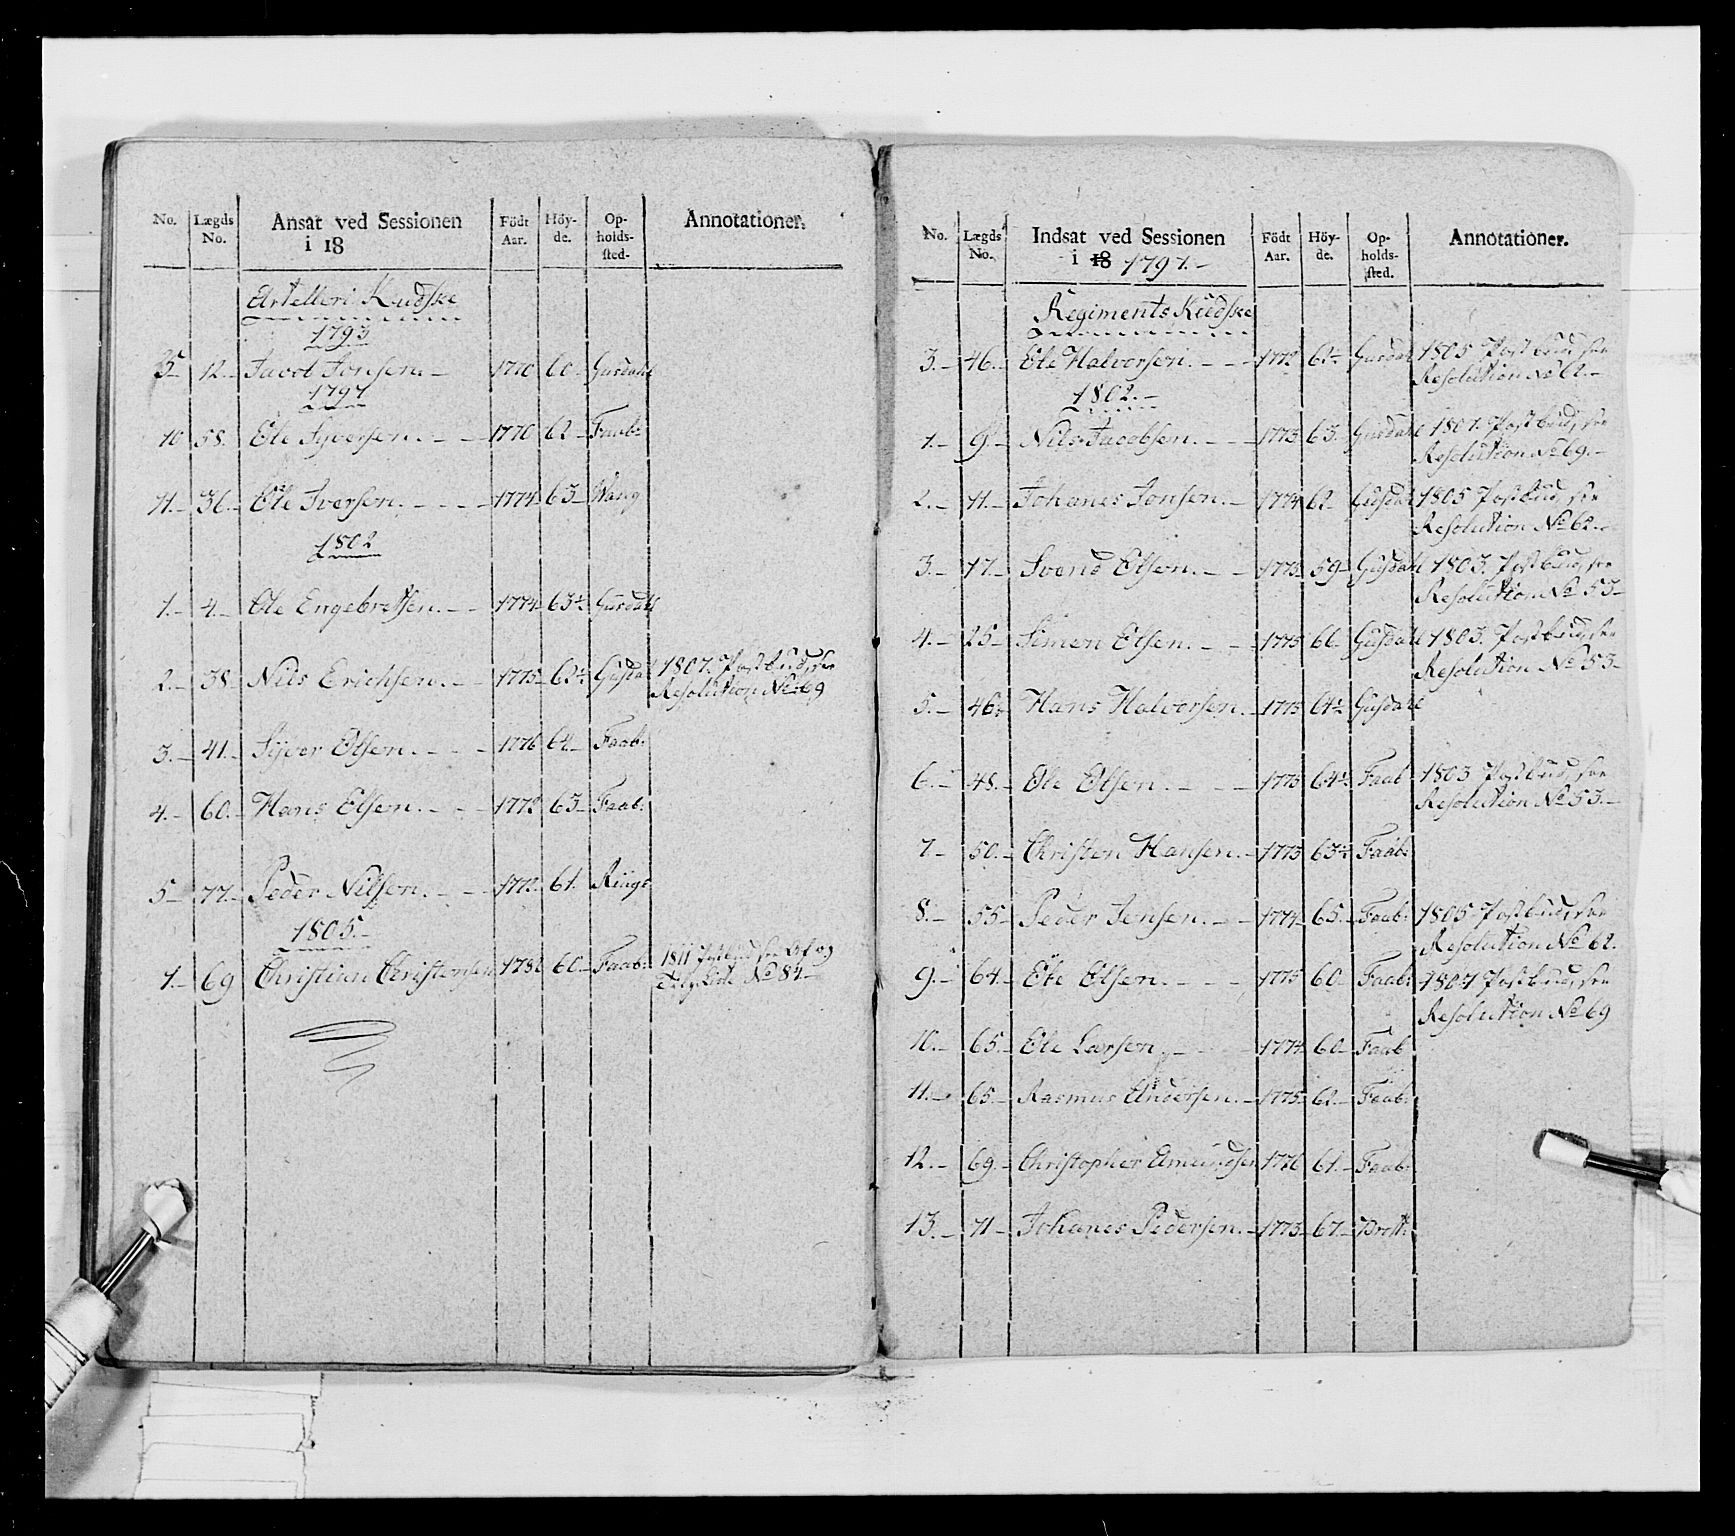 No. Lægds No. Ansat ved Sessionen i 18 Födt Aar. Höy-de. Op-holds-sted. Annotationer.
Artelleri Kudske
1793
5 12. Jacob Jonsen. 1770 60 Gusdahl
1797
10 58. Ole Syversen. 1770 62 Faab:
11. 36. Ole Iversen. 1774 63 Wang
1802
1. 4. Ole Engebretsen. 1774 63½ Gusdahl
2. 38 Nils Erichsen. 1775 62½ Gusdal 1807. Postbud, see
Resolution No 69
3. 41. Syver Olsen. 1776 64 Faab:
4. 60. Hans Olsen. 1772 63 Faab:
5 77. Peder Nilsen. 1772 61. Rings
1805.
1. 69 Christian Christensen 60 Faab: 1811 Postbud see
No 84
No. Lægds No. Indsat ved Sessionen i 18 1797. Födt Aar. Höy-de. Op-holds-sted. Annotationer.
Regiments Kudske
3. 46. Ole Halvorsen. 1772 62½ Gusdal 1805 Postbud, see
Resolution No 62.
1802.
1. 9. Nils Jacobsen. 1773 63 Gusdahl 1807. Postbud, see
Resolution No 69.
2. 11. Johanes Jonsen. 1774 62 Gusdal 1805 Postbud, see
Resolution No 62.
3. 17. Svend Olsen. 1775 59 Gusdahl 1803. Postbud, see
Resolution No 53
4. 25 Simen Olsen. 1775 Gusdahl 1803. Postbud, see
Resolution No 53
5. 46. Hans Halvorsen. 1775 64½ Gusdahl
6. 48. Ole Olsen. 1775 64½ Faab 1803 Postbud, see
Resolution No 53.
7 50. Christen Hansen. 1773 63½ Faab:
8. 55 Peder Jensen. 1774 65. Faab: 1805 Postbud, see
Resolution No 62.
9. 64. Ole Olsen. 1775 60 Faab: 1807 Postbud, see
Resolution No 69
10. 65. Ole Larsen 1774 60 Faab
11. 65. Rasmus Andersen. 1775 62. Faab:
12. 69. Christopher Amundsen 1776 61. Faab:
13. 71 Johanes Pedersen. 1773 67 Brott: